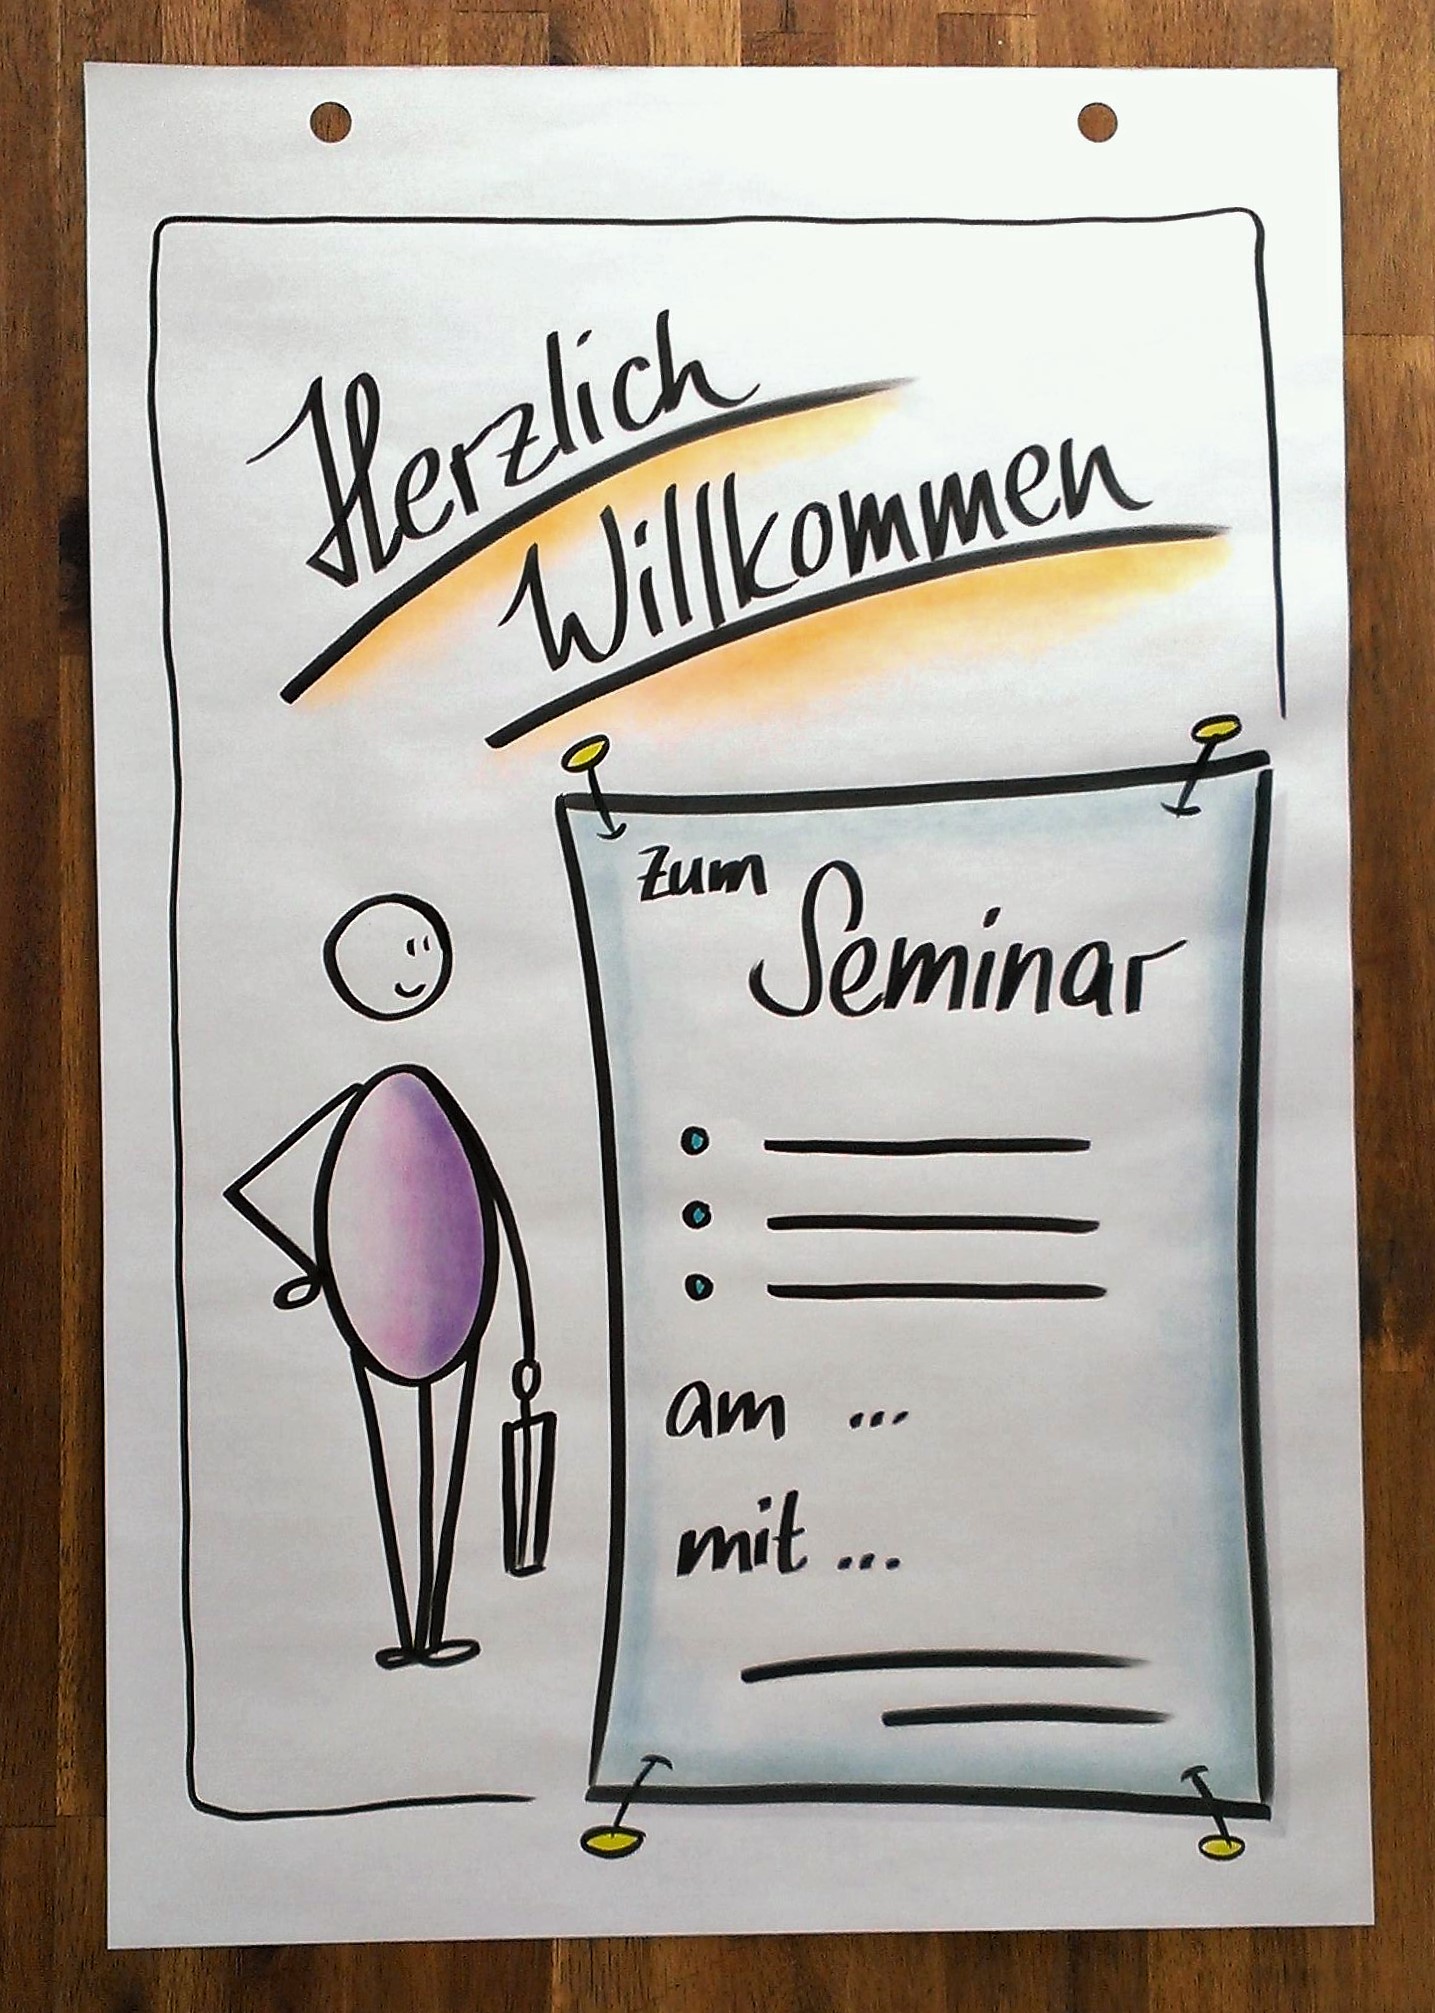 Herzlich
Willkommen
zum
Seminar
am ...
mit ...